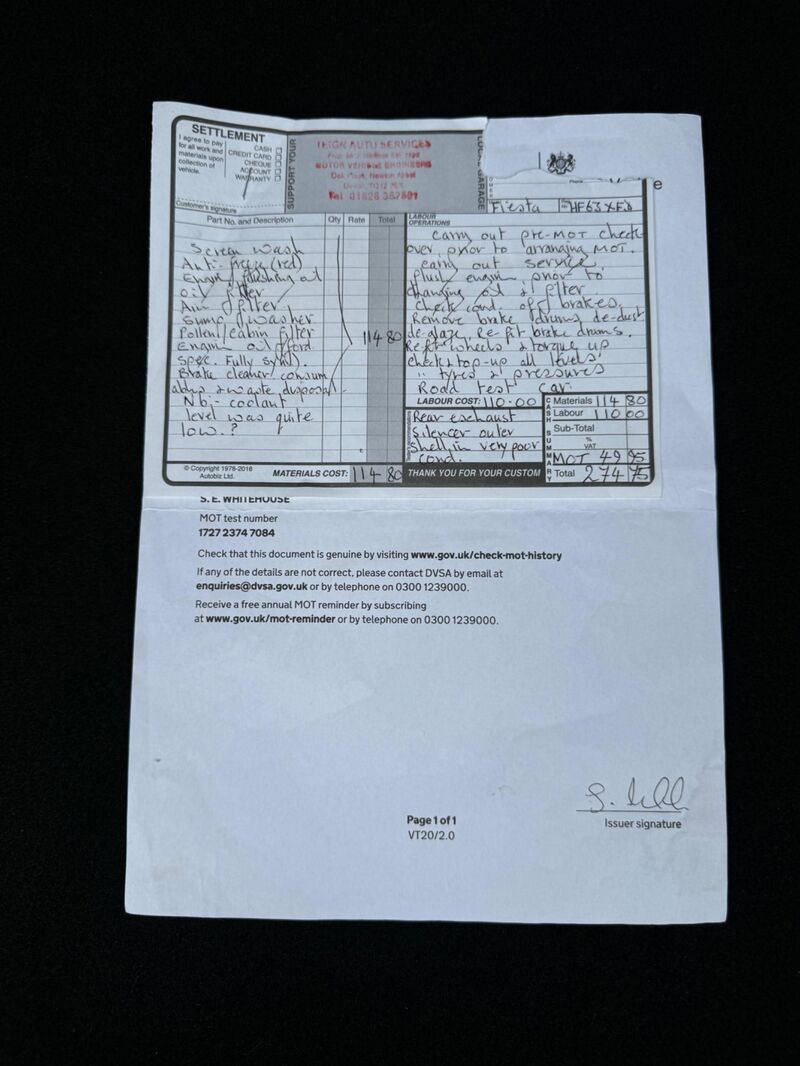 SETTLEMENT
I agree to pay
for all work and
materials upon
collection of
vehicle.
CASH
CREDIT CARD
CHEQUE
ACCOUNT
WARRANTY
Customer's signature
SUPPORT YOUR
TEIGN AUTO SERVICES
MOTOR VEHICLE ENGINEERS
Newton Abbot
GARAGE
Phone
e
Fiesta
HF63XFD
Part No. and Description
Qty
Rate
Total
Screen wash
Anti-freeze (red)
Engine flushing oil
Oil filter
Air filter
Sump washer
Pollen/cabin filter
114 80
Engine oil ford
Spec. Fully Synth.
Brake cleaner, consum
ables & waste disposal
Nb:- coolant
level was quite
low.?
© Copyright 1978-2018
Autobiz Ltd.
MATERIALS COST: 114 80
LABOUR
OPERATIONS
carry out pre-MOT check-
over, prior to arranging MOT.
carry out service,
flush engine, prior to
changing oil & filter.
Check cond. of brakes.
Remove brake drums de-dust
de-glaze, re-fit brake drums.
Refit wheels & torque up
check & top-up all levels
" tyres & pressures
Road test car
LABOUR COST: 110.00
Rear exchaust
Silencer outer
Shell in very poor
cond.
CASH SUMMARY
Materials 114 80
Labour 110 00
Sub-Total
%
VAT
MOT 49 95
Total 274 75
THANK YOU FOR YOUR CUSTOM
S. E. WHITEHOUSE
MOT test number
1727 2374 7084
Check that this document is genuine by visiting www.gov.uk/check-mot-history
If any of the details are not correct, please contact DVSA by email at
enquiries@dvsa.gov.uk or by telephone on 0300 1239000.
Receive a free annual MOT reminder by subscribing
at www.gov.uk/mot-reminder or by telephone on 0300 1239000.
Page 1 of 1
VT20/2.0
Issuer signature